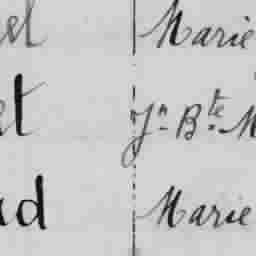 el Marie
et Jn Bte M
ud Marie